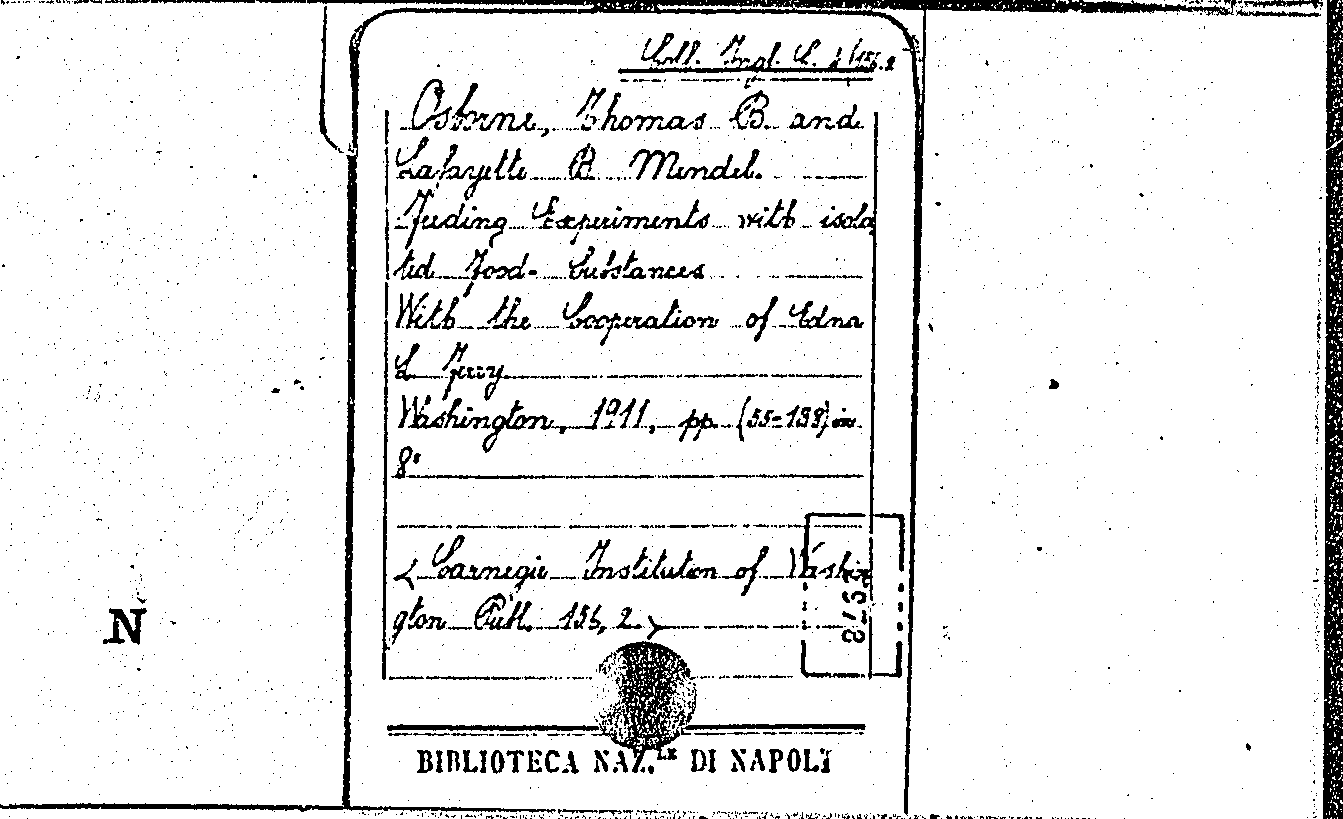 Coll. Ingl. C. 1/156.2
Osborne, Thomas B. and
Lafayette B Mendel.
Feeding Experiments with isola
ted Food-Substances
With the Cooperation of Edna
L Ferry
Washington, 1911, pp. (55-138) in
8°
< Carnegie Institution of Washin
gton Publ. 156, 2. >
N
BIBLIOTECA NAZ.LE DI NAPOLI